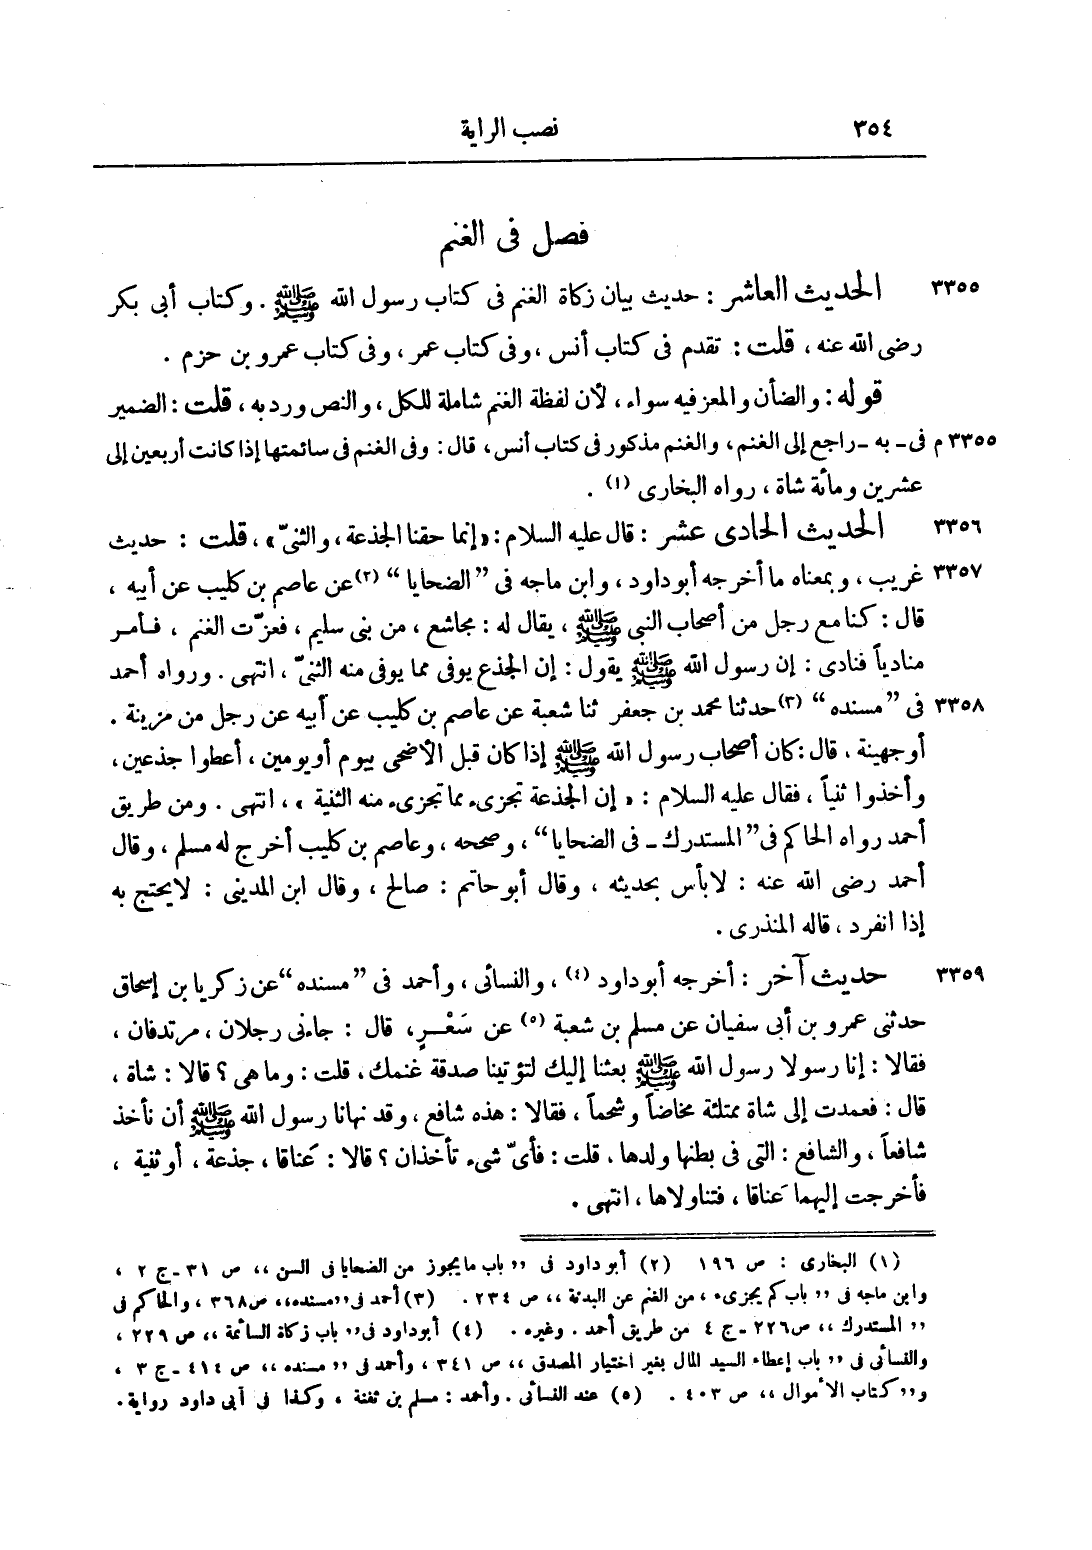 ٣٥٤ نصب الراية
فصل فى الغنم
٣٣٥٥ الحديث العاشر : حديث بيان زكاة الغنم فى كتاب رسول الله ﷺ . وكتاب أبى بكر
رضى الله عنه ، قلت : تقدم فى كتاب أنس ، وفى كتاب عمر ، وفى كتاب عمرو بن حزم .
قوله : والضأن والمعز فيه سواء ، لأن لفظة الغنم شاملة للكل ، والنص ورد به ، قلت : الضمير
٣٣٥٥ م فى ـ به ـ راجع إلى الغنم ، والغنم مذكور فى كتاب أنس ، قال : وفى الغنم فى سائمتها إذا كانت أربعين إلى
عشرين ومائة شاة ، رواه البخارى (١) .
٣٣٥٦ الحديث الحادى عشر : قال عليه السلام : « إنما حقنا الجذعة ، والثنىّ » ، قلت : حديث
٣٣٥٧ غريب ، وبمعناه ما أخرجه أبو داود ، وابن ماجه فى ”الضحايا“ (٢) عن عاصم بن كليب عن أبيه ،
قال : كنا مع رجل من أصحاب النبى ﷺ ، يقال له : مجاشع ، من بنى سليم ، فعزّت الغنم ، فأمر
منادياً فنادى : إن رسول الله ﷺ يقول : إن الجذع يوفى مما يوفى منه الثنىّ ، انتهى . ورواه أحمد
٣٣٥٨ فى ”مسنده“ (٣) حدثنا محمد بن جعفر ثنا شعبة عن عاصم بن كليب عن أبيه عن رجل من مزينة .
أو جهينة ، قال : كان أصحاب رسول الله ﷺ إذا كان قبل الأضحى بيوم أو يومين ، أعطوا جذعين ،
وأخذوا ثنياً ، فقال عليه السلام : « إن الجذعة تجزىء مما تجزىء منه الثنية » ، انتهى . ومن طريق
أحمد رواه الحاكم فى ”المستدرك ـ فى الضحايا“ ، وصححه ، وعاصم بن كليب أخرج له مسلم ، وقال
أحمد رضى الله عنه : لا بأس بحديثه ، وقال أبو حاتم : صالح ، وقال ابن المدينى : لا يحتج به
إذا انفرد ، قاله المنذرى .
٣٣٥٩ حديث آخر : أخرجه أبو داود (٤) ، والنسائى ، وأحمد فى ”مسنده“ عن زكريا بن إسحاق
حدثنى عمرو بن أبى سفيان عن مسلم بن شعبة (٥) عن سَعْرٍ ، قال : جاءنى رجلان ، مرتدفان ،
فقالا : إنا رسولا رسول الله ﷺ بعثنا إليك لتؤتينا صدقة غنمك ، قلت : وما هى ؟ قالا : شاة ،
قال : فعمدت إلى شاة ممتلئة مخاضاً وشحماً ، فقالا : هذه شافع ، وقد نهانا رسول الله ﷺ أن نأخذ
شافعاً ، والشافع : التى فى بطنها ولدها ، قلت : فأىّ شىء تأخذان ؟ قالا : عَناقا ، جذعة ، أو ثنية ،
فأخرجت إليهما عَناقا ، فتناولاها ، انتهى .
(١) البخارى : ص ١٩٦ (٢) أبو داود فى ،، باب ما يجوز من الضحايا فى السن ،، ص ٣١ ـ ج ٢ ،
وابن ماجه فى ،، باب كم يجزىء ، من الغنم عن البدنة ،، ص ٢٣٤ . (٣) أحمد فى ،،مسنده،، ص ٣٦٨ ، والحاكم فى
،، المستدرك ،، ص ٢٢٦ ـ ج ٤ من طريق أحمد . وغيره . (٤) أبو داود فى ،، باب زكاة السائمة ،، ص ٢٢٩ ،
والنسائى فى ،، باب إعطاء السيد المال بغير اختيار المصدق ،، ص ٣٤١ ، وأحمد فى ،، مسنده ،، ص ٤١٤ ـ ج ٣ ،
و،، كتاب الأموال ،، ص ٤٠٣ . (٥) عند النسائى . وأحمد : مسلم بن ثفنة ، وكذا فى أبى داود رواية .